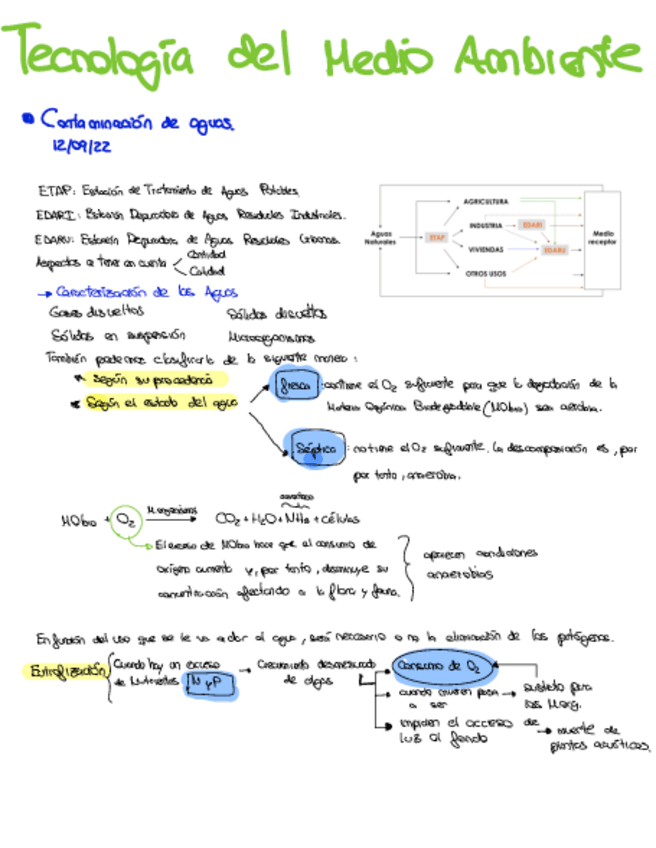 Tecnología del Medio Ambiente
• Contaminación de aguas.
12/09/22
ETAP: Estación de Tratamiento de Aguas Potables.
EDARI: Estación Depuradora de Aguas Residuales Industriales.
EDARU: Estación Depuradora de Aguas Residuales Urbanas.
Aspectos a tener en cuenta
Cantidad
Calidad
AGRICULTURA
INDUSTRIA
EDARI
Aguas Naturales
ETAP
Medio receptor
VIVIENDAS
EDARU
OTROS USOS
→ Caracterización de las Aguas
Gases disueltos
Sólidos disueltos
Sólidos en suspensión
Microorganismos
También podemos clasificarla de la siguiente manera:
Según su procedencia
Según el estado del agua
fresca: contiene el O₂ suficiente para que la degradación de la
Materia Orgánica Biodegradable (MObio) sea aerobia.
Séptica: no tiene el O₂ suficiente. La descomposición es, por
por tanto, anaerobia.
MObio + O₂ → CO₂ + H₂O + NH₃ + células
El exceso de MObio hace que el consumo de
oxígeno aumente y, por tanto, disminuye su
concentración afectando a la flora y fauna.
aparecen condiciones
anaerobias
En función del uso que se le va a dar al agua, será necesario o no la eliminación de los patógenos.
Eutrofización
Cuando hay un exceso
de Nutrientes N y P
→ Crecimiento desmesurado
de algas
Consumo de O₂
cuando mueren pasa
a ser
→ sustrato para
los Morg.
impiden el acceso de
luz al fondo
→ muerte de
plantas acuáticas.